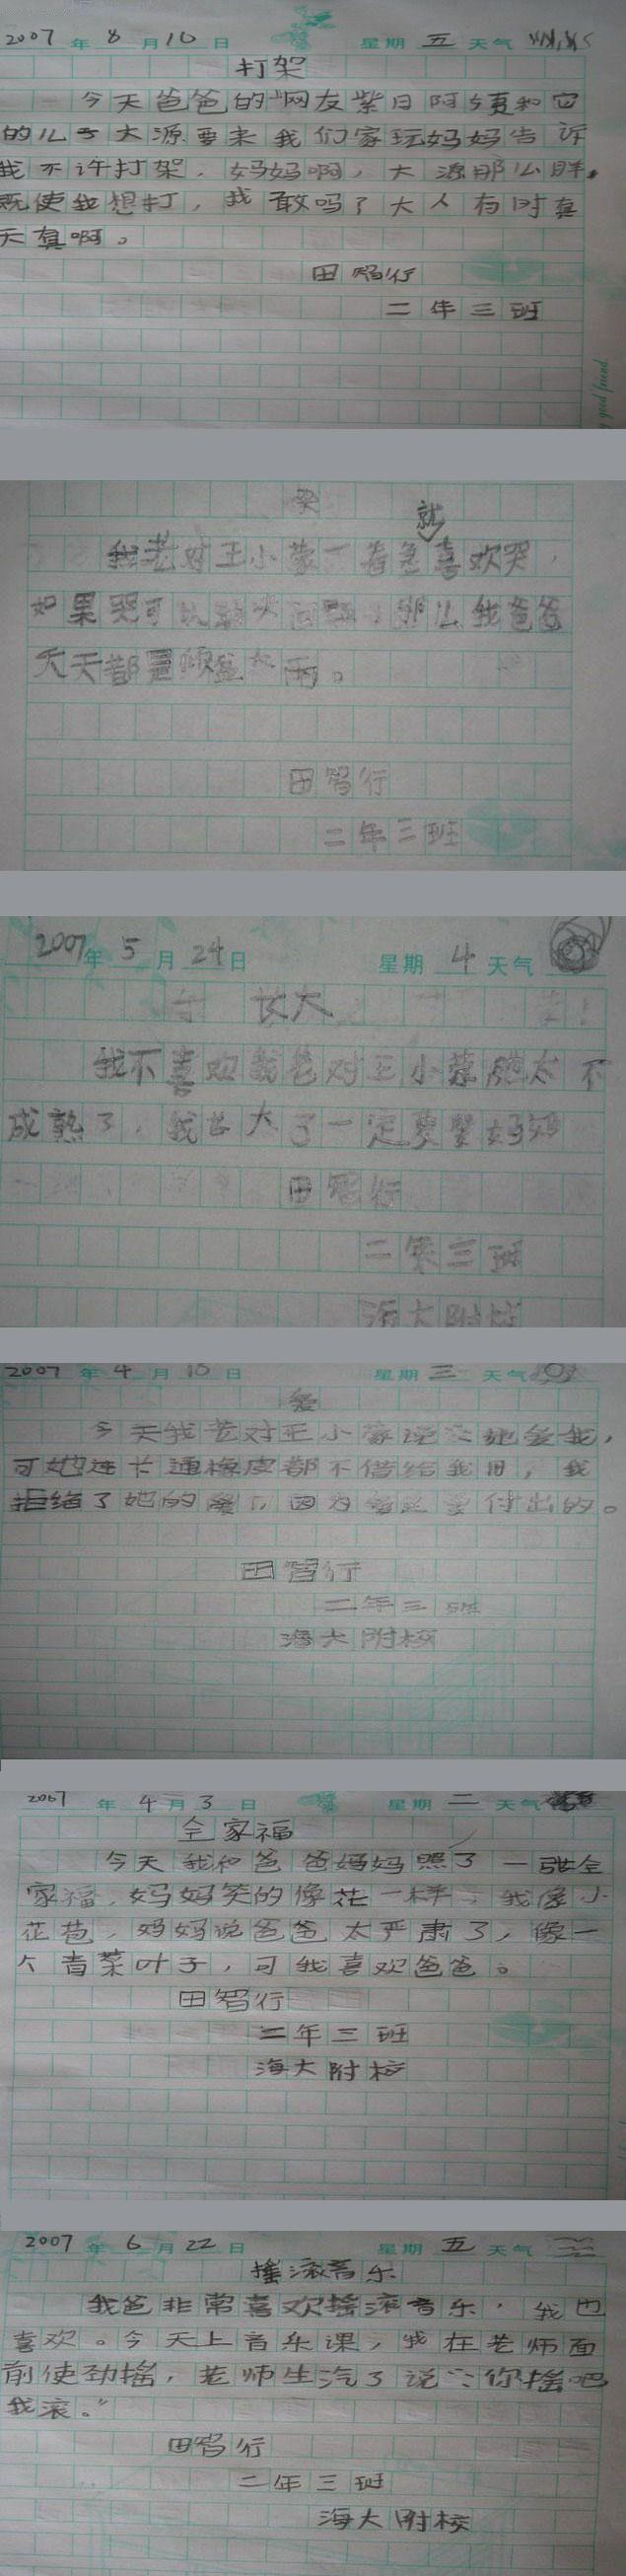 2007 年 8 月 10 日 星期 五 天气
打架
今天爸爸的网友紫日阿姨和它
的儿子大源要来我们家玩妈妈告诉
我不许打架，妈妈啊，大源那么胖，
既使我想打，我敢吗？大人有时真
天真啊。
田智行
二年三班
good friend
哭
就
我老对王小蒙一着急喜欢哭，
如果哭可以解决问题，那么我爸爸
天天都是倾盆大雨。
田智行
二年三班
2007年 5 月 24日 星期 4 天气
长大
我不喜欢我老对王小蒙她太不
成熟了，我长大了一定要娶妈妈
田智行
二年三班
海大附校
2007 年 4 月 18 日 星期 三 天气
爱
今天我老对王小蒙说：她爱我，
可她连卡通橡皮都不借给我用，我
拒绝了她的爱，因为爱是要付出的。
田智行
二年三班
海大附校
2007 年 4 月 3 日 星期 二 天气
全家福
今天我和爸爸妈妈照了一张全
家福，妈妈笑的像花一样，我像小
花苞，妈妈说爸爸太严肃了，像一
个青菜叶子，可我喜欢爸爸。
田智行
二年三班
海大附校
2007 年 6 月 22 日 星期 五 天气
摇滚音乐
我爸非常喜欢摇滚音乐，我也
喜欢。今天上音乐课，我在老师面
前使劲摇，老师生汽了说：“你摇吧
我滚。”
田智行
二年三班
海大附校